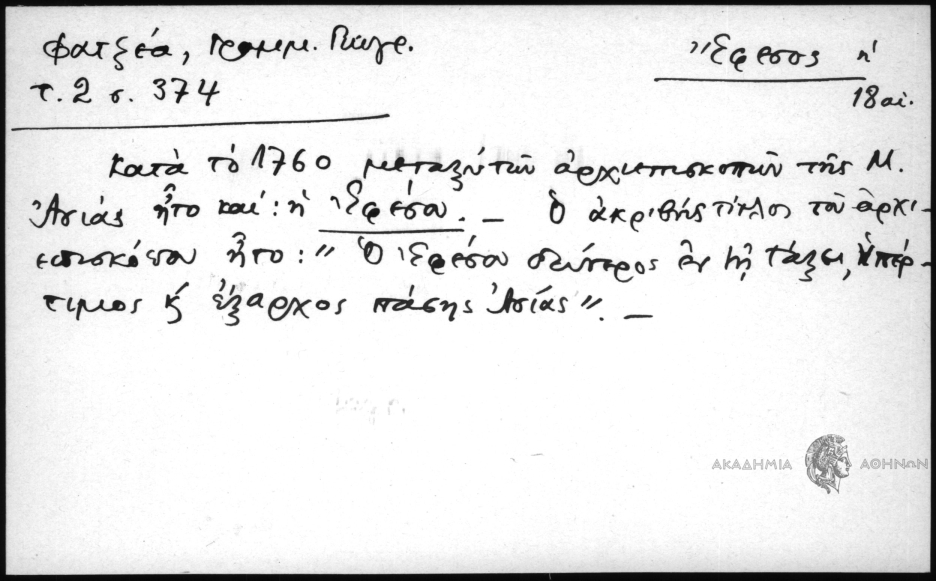 Φατζέα, Γραμμ. Γεωγρ.
τ. 2 σ. 374
Ἔφεσος ἡ
18 αἰ.
Κατὰ τὸ 1760 μεταξὺ τῶν ἀρχιεπισκοπῶν τῆς Μ.
Ἀσιάς ἦτο καί: ἡ Ἐφέσου. — Ὁ ἀκριβὴς τίτλος τοῦ ἀρχι-
επισκόπου ἦτο: " Ὁ Ἐφέσου δεύτερος ἐν τῇ τάξει, ὑπέρ-
τιμος κ ἔξαρχος πάσης Ἀσίας". —
ΑΚΑΔΗΜΙΑ ΑΘΗΝΩΝ